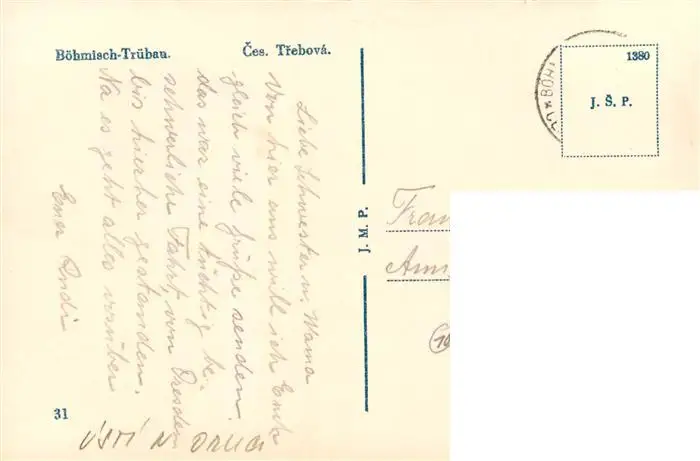 Böhmisch-Trübau.
Čes. Třebová.
Liebe Schwester u. Mama
Von hier aus will ich Euch
gleich viele Grüße senden.
das war eine tüchtig be-
schwerliche Fahrt, von Dresden
bis hierher gestanden.
Na es geht alles vorüber
Euer Rudi
31
ÚSTÍ N ORLICÍ
J. M. P.
1380
J. Š. P.
BÖHM
Frau
Ann